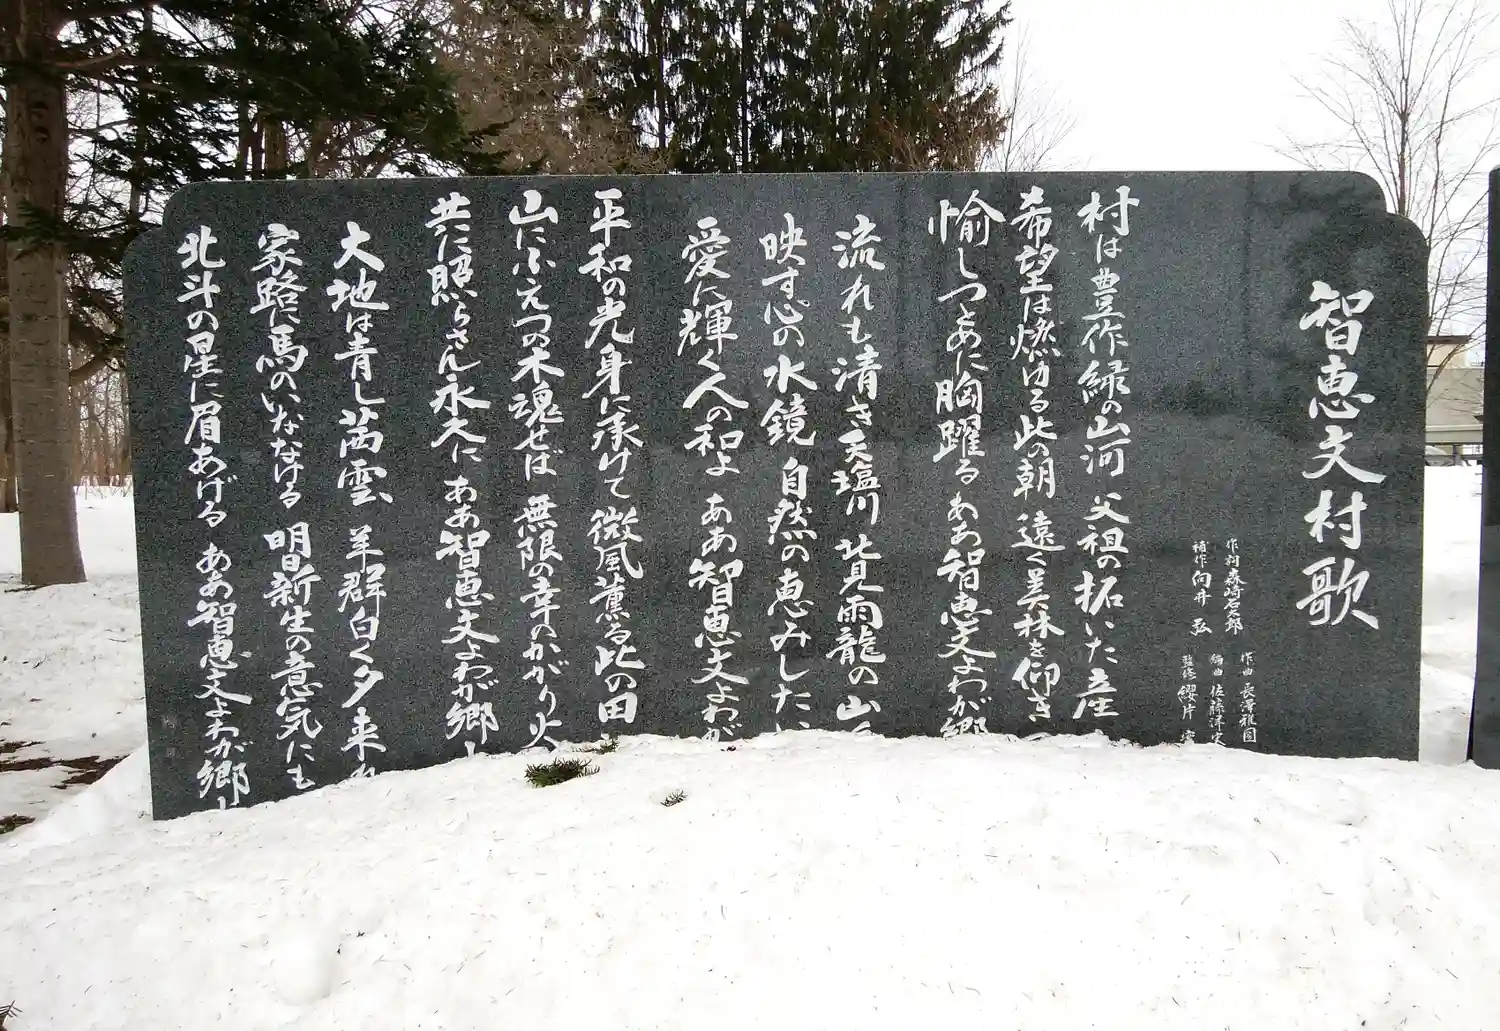 智恵文村歌
作詞 森崎石太郎
補作 向井 弘
作曲 長澤雅園
編曲 佐藤洋史
監修 纓片
村は豊作緑の山河 父祖の拓いた産
希望は燃ゆる此の朝 遠く美林を仰ぎつ
愉しつとあに胸躍る ああ智恵文よわが郷
流れも清き天塩川 北見雨龍の山
映す心の水鏡 自然の恵みしたい
愛に輝く人の和よ ああ智恵文よわが
平和の光身に承けて 微風薫る此の田
山にふえつの木魂せば 無限の幸のかがり火
共に照らさん永久に ああ智恵文よわが郷
大地は青し茜雲 羊群白く夕来れ
家路に馬のいななける 明日新生の意気にも
北斗の星に眉あげる ああ智恵文よわが郷